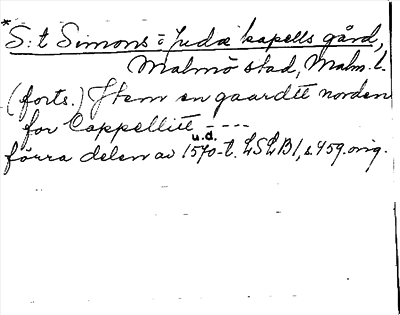 *S:t Simons o Judæ kapells gård,
Malmö stad, Malm. l.
(forts.) Jtem en gaardtt norden
for Cappellitt ----
u.d.
förra delen av 1570-t. LSLB1, s. 459. orig.